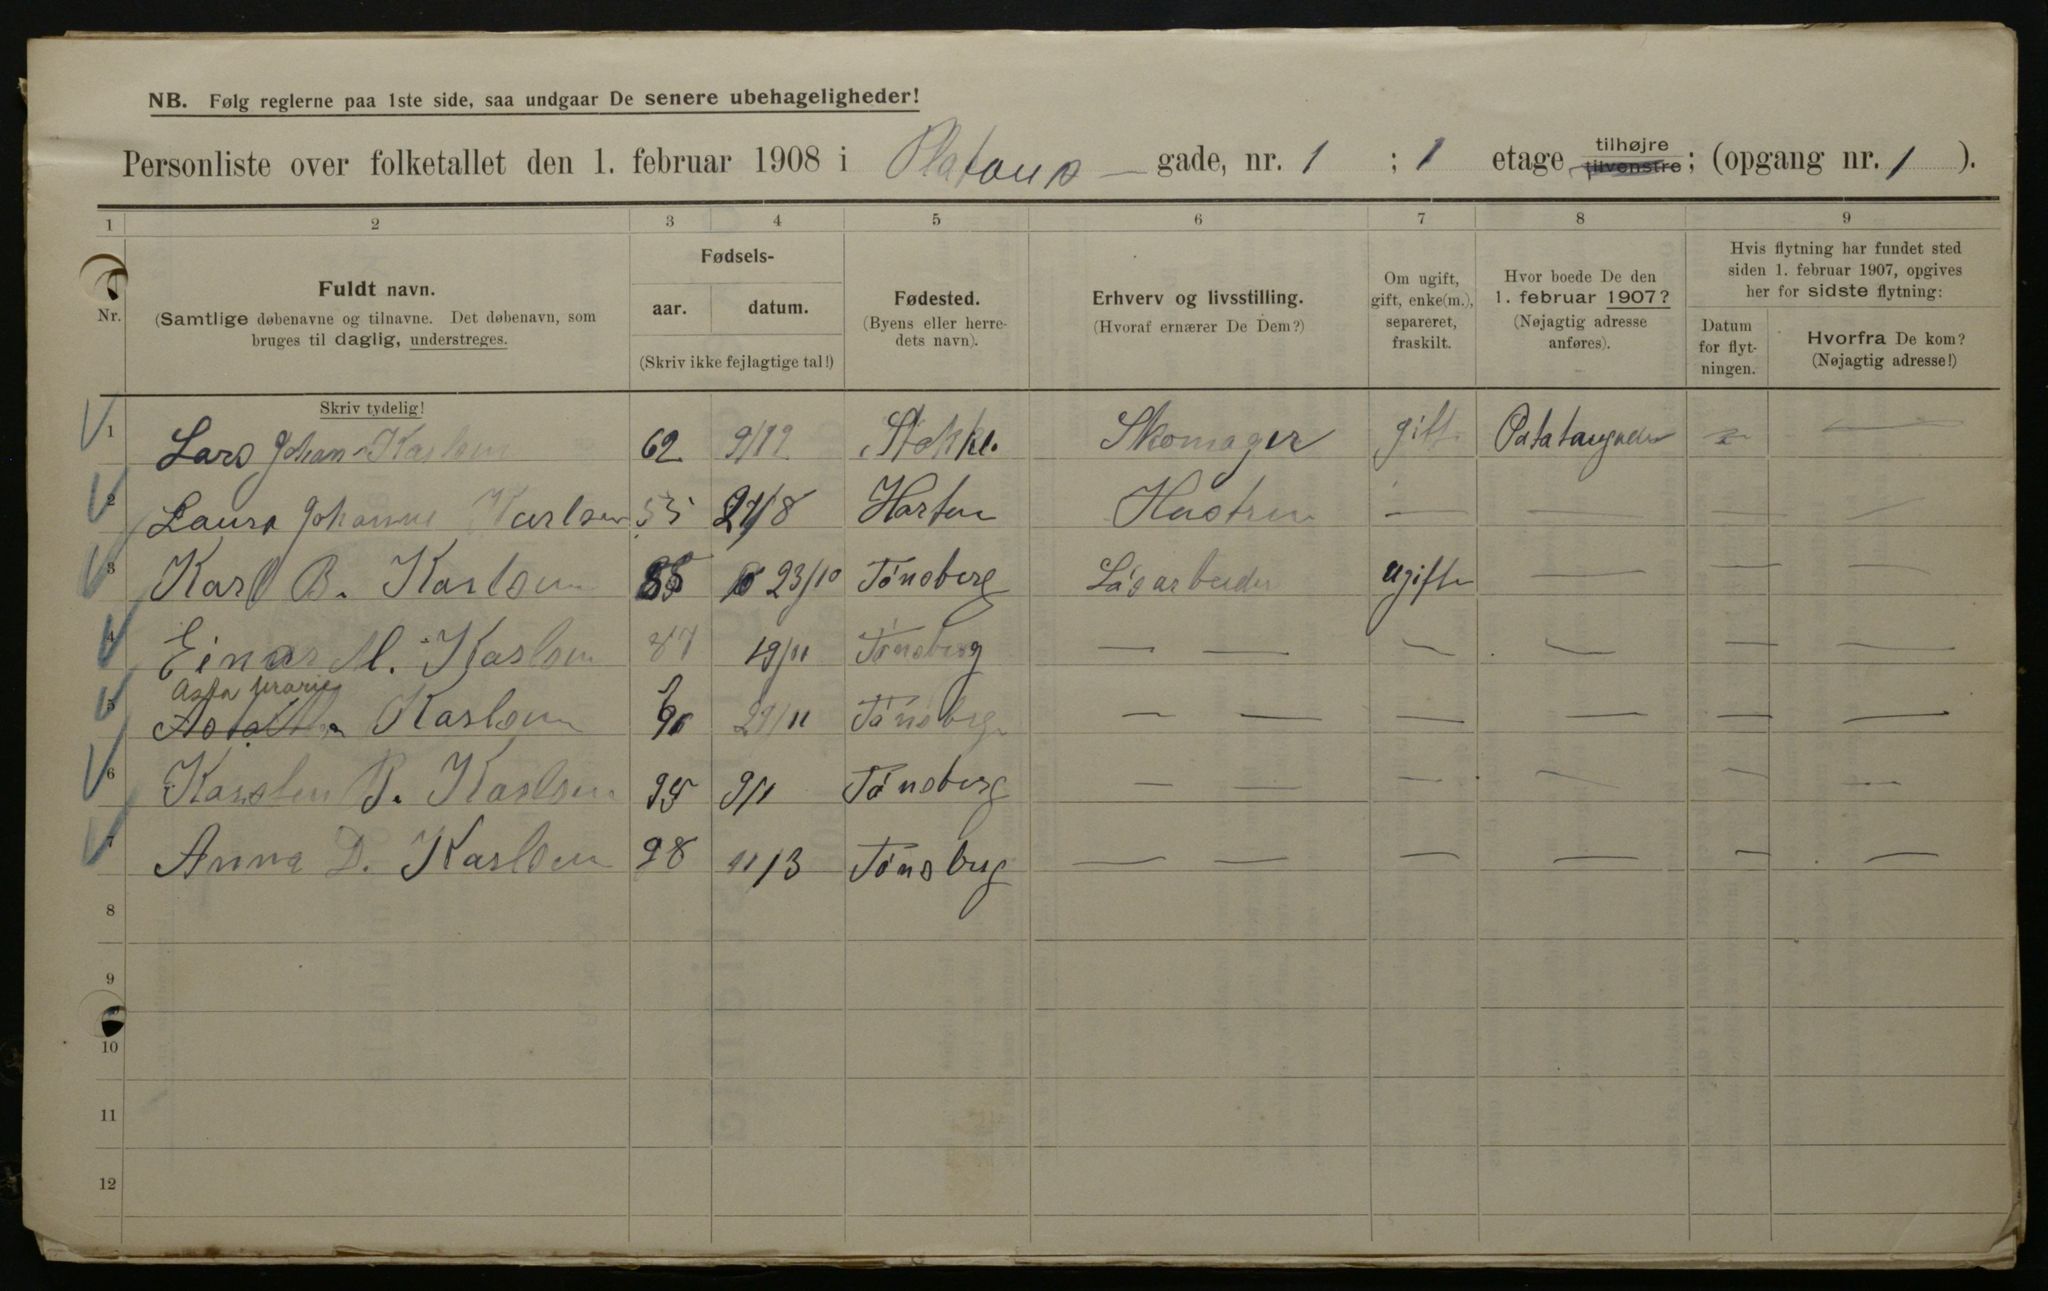 NB. Følg reglerne paa 1ste side, saa undgaar De senere ubehageligheder!
Personliste over folketallet den 1. februar 1908 i Platous — gade, nr. 1 ; 1 etage tilhøjre tilvenstre; (opgang nr. 1 ).
1 2 3 4 5 6 7 8 9
Nr.
Fuldt navn.
(Samtlige døbenavne og tilnavne. Det døbenavn, som
bruges til daglig, understreges.
Fødsels-
aar. datum.
(Skriv ikke fejlagtige tal!)
Fødested.
(Byens eller herre-
dets navn).
Erhverv og livsstilling.
(Hvoraf ernærer De Dem?)
Om ugift,
gift, enke(m.),
separeret,
fraskilt.
Hvor boede De den
1. februar 1907?
(Nøjagtig adresse
anføres).
Hvis flytning har fundet sted
siden 1. februar 1907, opgives
her for sidste flytning:
Datum
for flyt-
ningen.
Hvorfra De kom?
(Nøjagtig adresse!)
Skriv tydelig!
1 Lars Johan Karlsen 62 9/12 Stokke. Skomager gift — —
2 Laura Johanne Karlsen 27/8 — — — —
3 Karl B. Karlsen 85 23/10 Tønsberg ugift — — —
4 Einar M. Karlsen 87 19/11 Tønsberg — — — — — —
Asta Marie
5 Karlsen 90 29/11 Tønsberg — — — — — —
6 Karsten P. Karlsen 95 9/1 Tønsberg — — — — — —
7 Anna D. Karlsen 98 11/3 Tønsberg — — — — — —
8
9
10
11
12